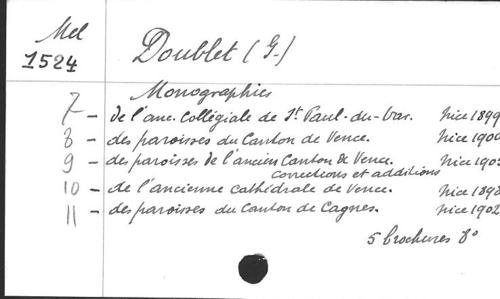 Mel
1524
Doublet (G.)
Monographies
7 - de l'anc. Collégiale de St Paul-du-Var. Nice 1899
8 - des paroisses du Canton de Vence. Nice 1900
9 - des paroisses de l'ancien Canton de Vence. Nice 1903
corrections et additions
10 - de l'ancienne cathédrale de Vence. Nice 1898
11 - des paroisses du Canton de Cagnes. Nice 1902
5 brochures 8°